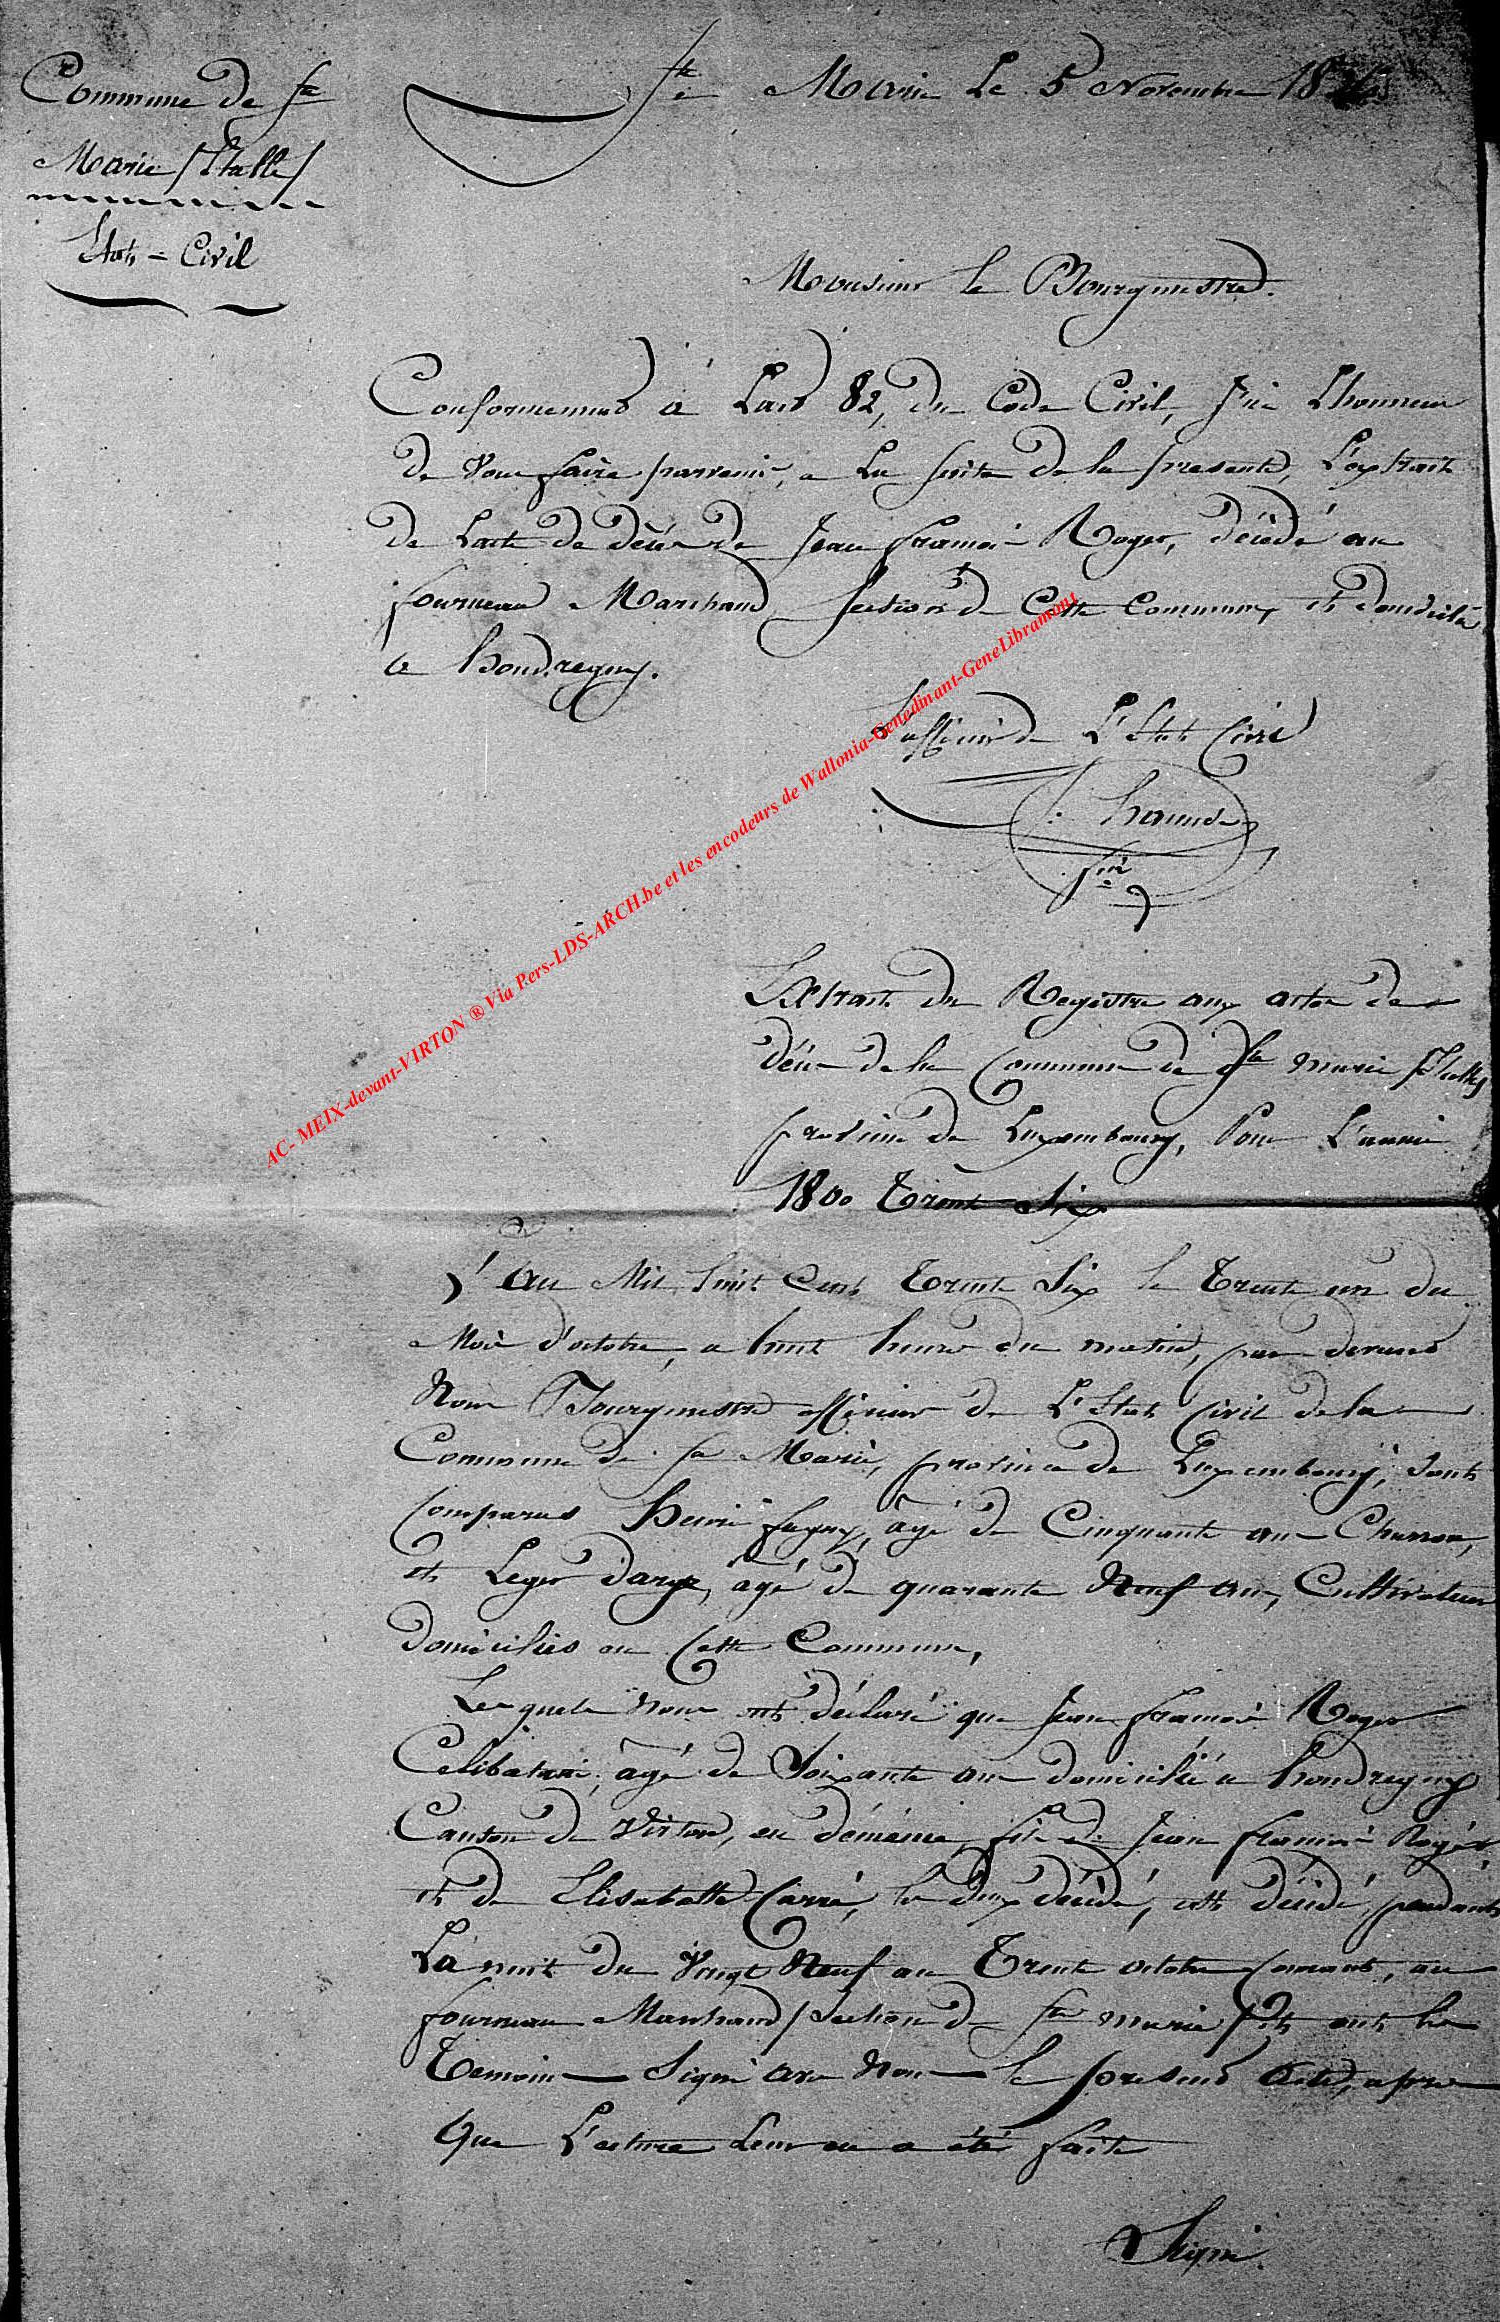 Commune de Ste
Marie /Etalle/
Etat = Civil
Ste Marie Le 5 Novembre 1836
Monsieur le Bourgmestre.
Conformement à Lart 82, du Code Civil, J'ai Lhonneur
de Vous faire parvenir, a La suite de la presente, L'extrait
de Lacte de décès de Jean françois Roger, décédé au
fourneau Marchand, Section de Cette Commune, et domicilié
a houdrigny.
L'officier de L'Etat Civil
Extrait du Registre aux actes de
décès de la Commune de Ste marie /Etalle/
province de Luxembourg, Pour L'année
1800 Trente Six
L'An Mil huit Cent Trente Six le Trente un du
Mois d'octobre, a huit heures du matin, par devant
Nous Bourgmestre officier de L'Etat Civil de la
Commune de Ste Marie, province de Luxembourg, sont
Comparus henri fagny, âgé de Cinquante ans Charron,
et Leger darge, âgé de quarante Neuf ans, Cultivateur
domiciliés en Cette Commune,
Lesquels nous ont déclaré que Jean françois Roger
Celibataire, âgé de Soixante ans domicilié a houdrigny
Canton de Virton, fils de Jean françois Roger
et de Elisabette Carré, les deux décédé, est décédé, pendant
La nuit du Vingt Neuf au Trente octobre Courant, au
fourneau Marchand /Section de Ste marie/ Et ont les
Temoins Signé avec Nous le present Acte, apres
Que Lecture Leur en a été faite
Signé
AC- MEIX-devant-VIRTON ® Via Pers-LDS-ARCH.be et les encodeurs de Wallonia-Genedinant-GeneLibramont